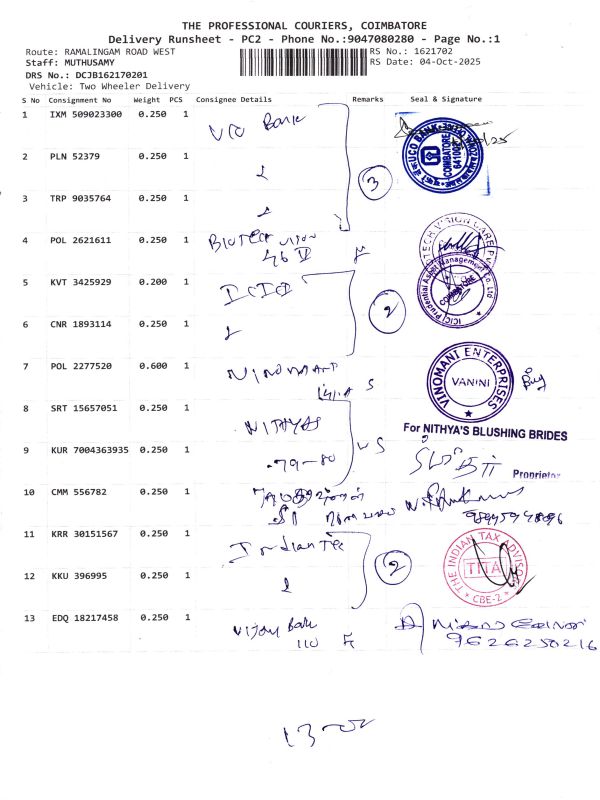 THE PROFESSIONAL COURIERS, COIMBATORE
Delivery Runsheet - PC2 - Phone No.:9047080280 - Page No.:1
Route: RAMALINGAM ROAD WEST
RS No.: 1621702
Staff: MUTHUSAMY
RS Date: 04-Oct-2025
DRS No.: DCJB162170201
Vehicle: Two Wheeler Delivery
S No Consignment No Weight PCS Consignee Details Remarks Seal & Signature
1 IXM 509023300 0.250 1 UCO Bank
UCO BANK COIMBATORE
2 PLN 52379 0.250 1
3
3 TRP 9035764 0.250 1
4 POL 2621611 0.250 1 Biotech vision
5 KVT 3425929 0.200 1 ICICI
2
ICICI Prudential Asset Management Co. Ltd
COIMBATORE
6 CNR 1893114 0.250 1
7 POL 2277520 0.600 1
VINOMANI ENTERPRISES
VANINI
8 SRT 15657051 0.250 1 NITHYAS
For NITHYA'S BLUSHING BRIDES
9 KUR 7004363935 0.250 1 79-80
Proprietor
10 CMM 556782 0.250 1
11 KRR 30151567 0.250 1 Indian Tec
2
THE INDIAN TAX ADVISO
TITA
CBE-2
12 KKU 396995 0.250 1
13 EDQ 18217458 0.250 1 Vijay Bak
110
9626250216